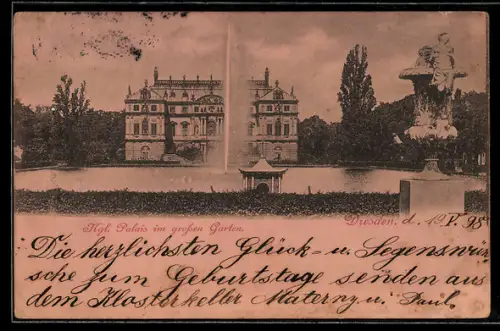 Kgl. Palais im großen Garten.
Dresden, d. 19. V. 98
Die herzlichsten Glück- u. Segenswün-
sche zum Geburtstage senden aus
dem Klosterkeller Materny u. Paul.